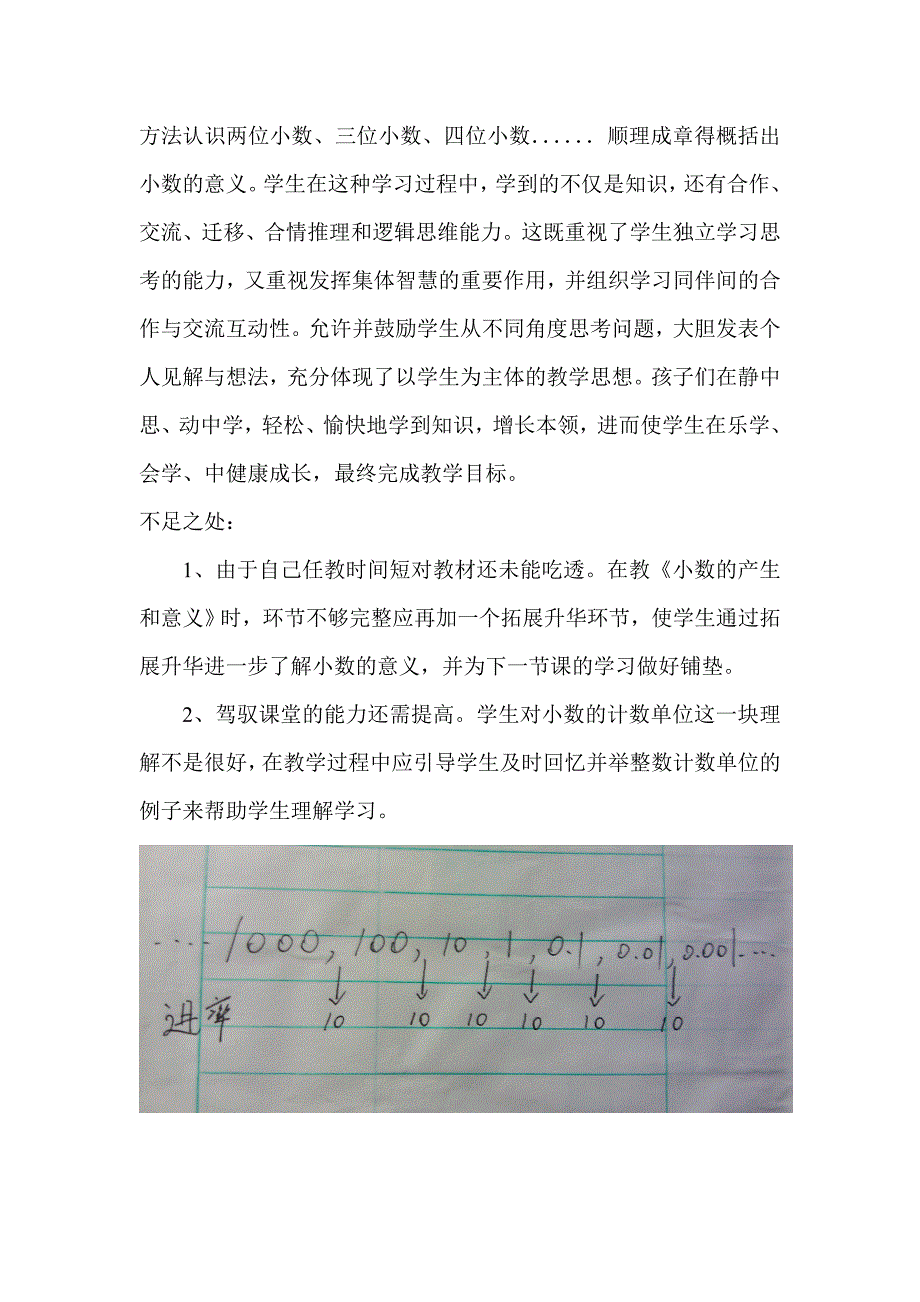 方法认识两位小数、三位小数、四位小数...... 顺理成章得概括出
小数的意义。学生在这种学习过程中，学到的不仅是知识，还有合作、
交流、迁移、合情推理和逻辑思维能力。这既重视了学生独立学习思
考的能力，又重视发挥集体智慧的重要作用，并组织学习同伴间的合
作与交流互动性。允许并鼓励学生从不同角度思考问题，大胆发表个
人见解与想法，充分体现了以学生为主体的教学思想。孩子们在静中
思、动中学，轻松、愉快地学到知识，增长本领，进而使学生在乐学、
会学、中健康成长，最终完成教学目标。
不足之处：
1、由于自己任教时间短对教材还未能吃透。在教《小数的产生
和意义》时，环节不够完整应再加一个拓展升华环节，使学生通过拓
展升华进一步了解小数的意义，并为下一节课的学习做好铺垫。
2、驾驭课堂的能力还需提高。学生对小数的计数单位这一块理
解不是很好，在教学过程中应引导学生及时回忆并举整数计数单位的
例子来帮助学生理解学习。
····1000,100,10,1,0.1,0.01,0.001···
进率 10 10 10 10 10 10